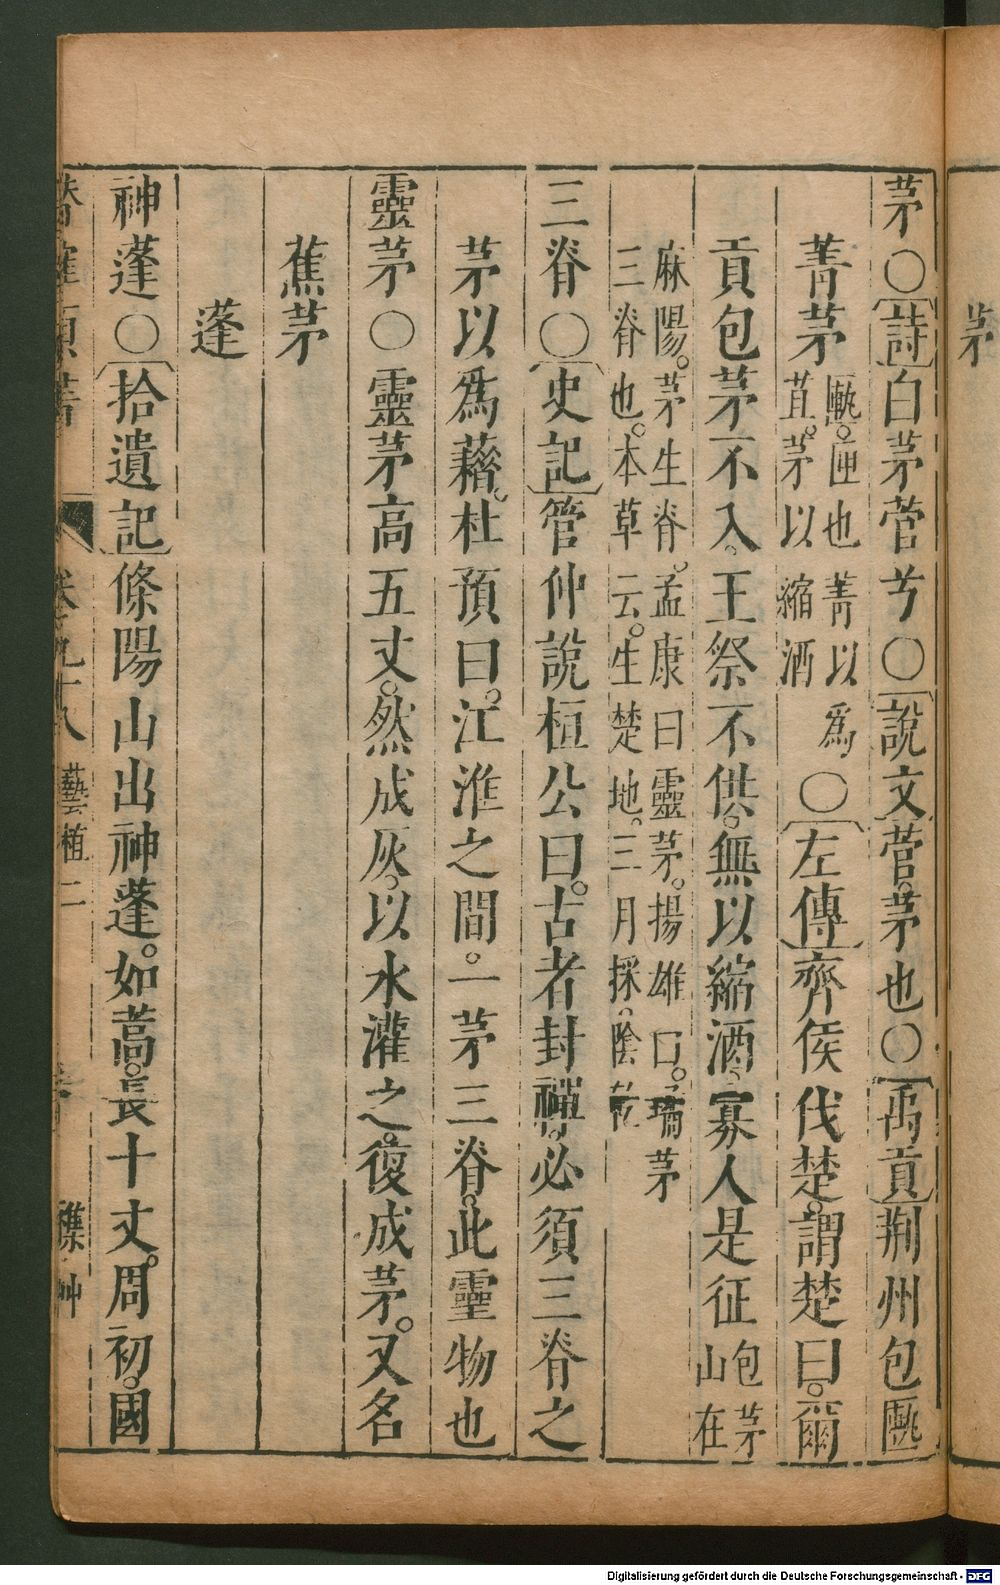 茅
茅○詩白茅菅兮○說文菅。茅也○禹貢荆州包匭
菁茅匭。匣也菁以為
苴。茅以縮酒○左傳齊侯伐楚。謂楚曰。爾
貢包茅不入。王祭不供。無以縮酒。寡人是征包茅
山在
麻陽。茅生脊。孟康曰靈茅。揚雄曰。璚茅
三脊也。本草云。生楚地。三月採。陰乾
三脊○史記管仲說桓公曰。古者封禪。必須三脊之
茅以爲藉。杜預曰。江淮之間。一茅三脊。此靈物也
靈茅○靈茅高五丈。然成灰。以水灌之。復成茅。又名
蕉茅
蓬
神蓬○拾遺記條陽山出神蓬。如蒿。長十丈。周初。國
卷九十八 藝植二 襍艸
Digitalisierung gefördert durch die Deutsche Forschungsgemeinschaft - DFG